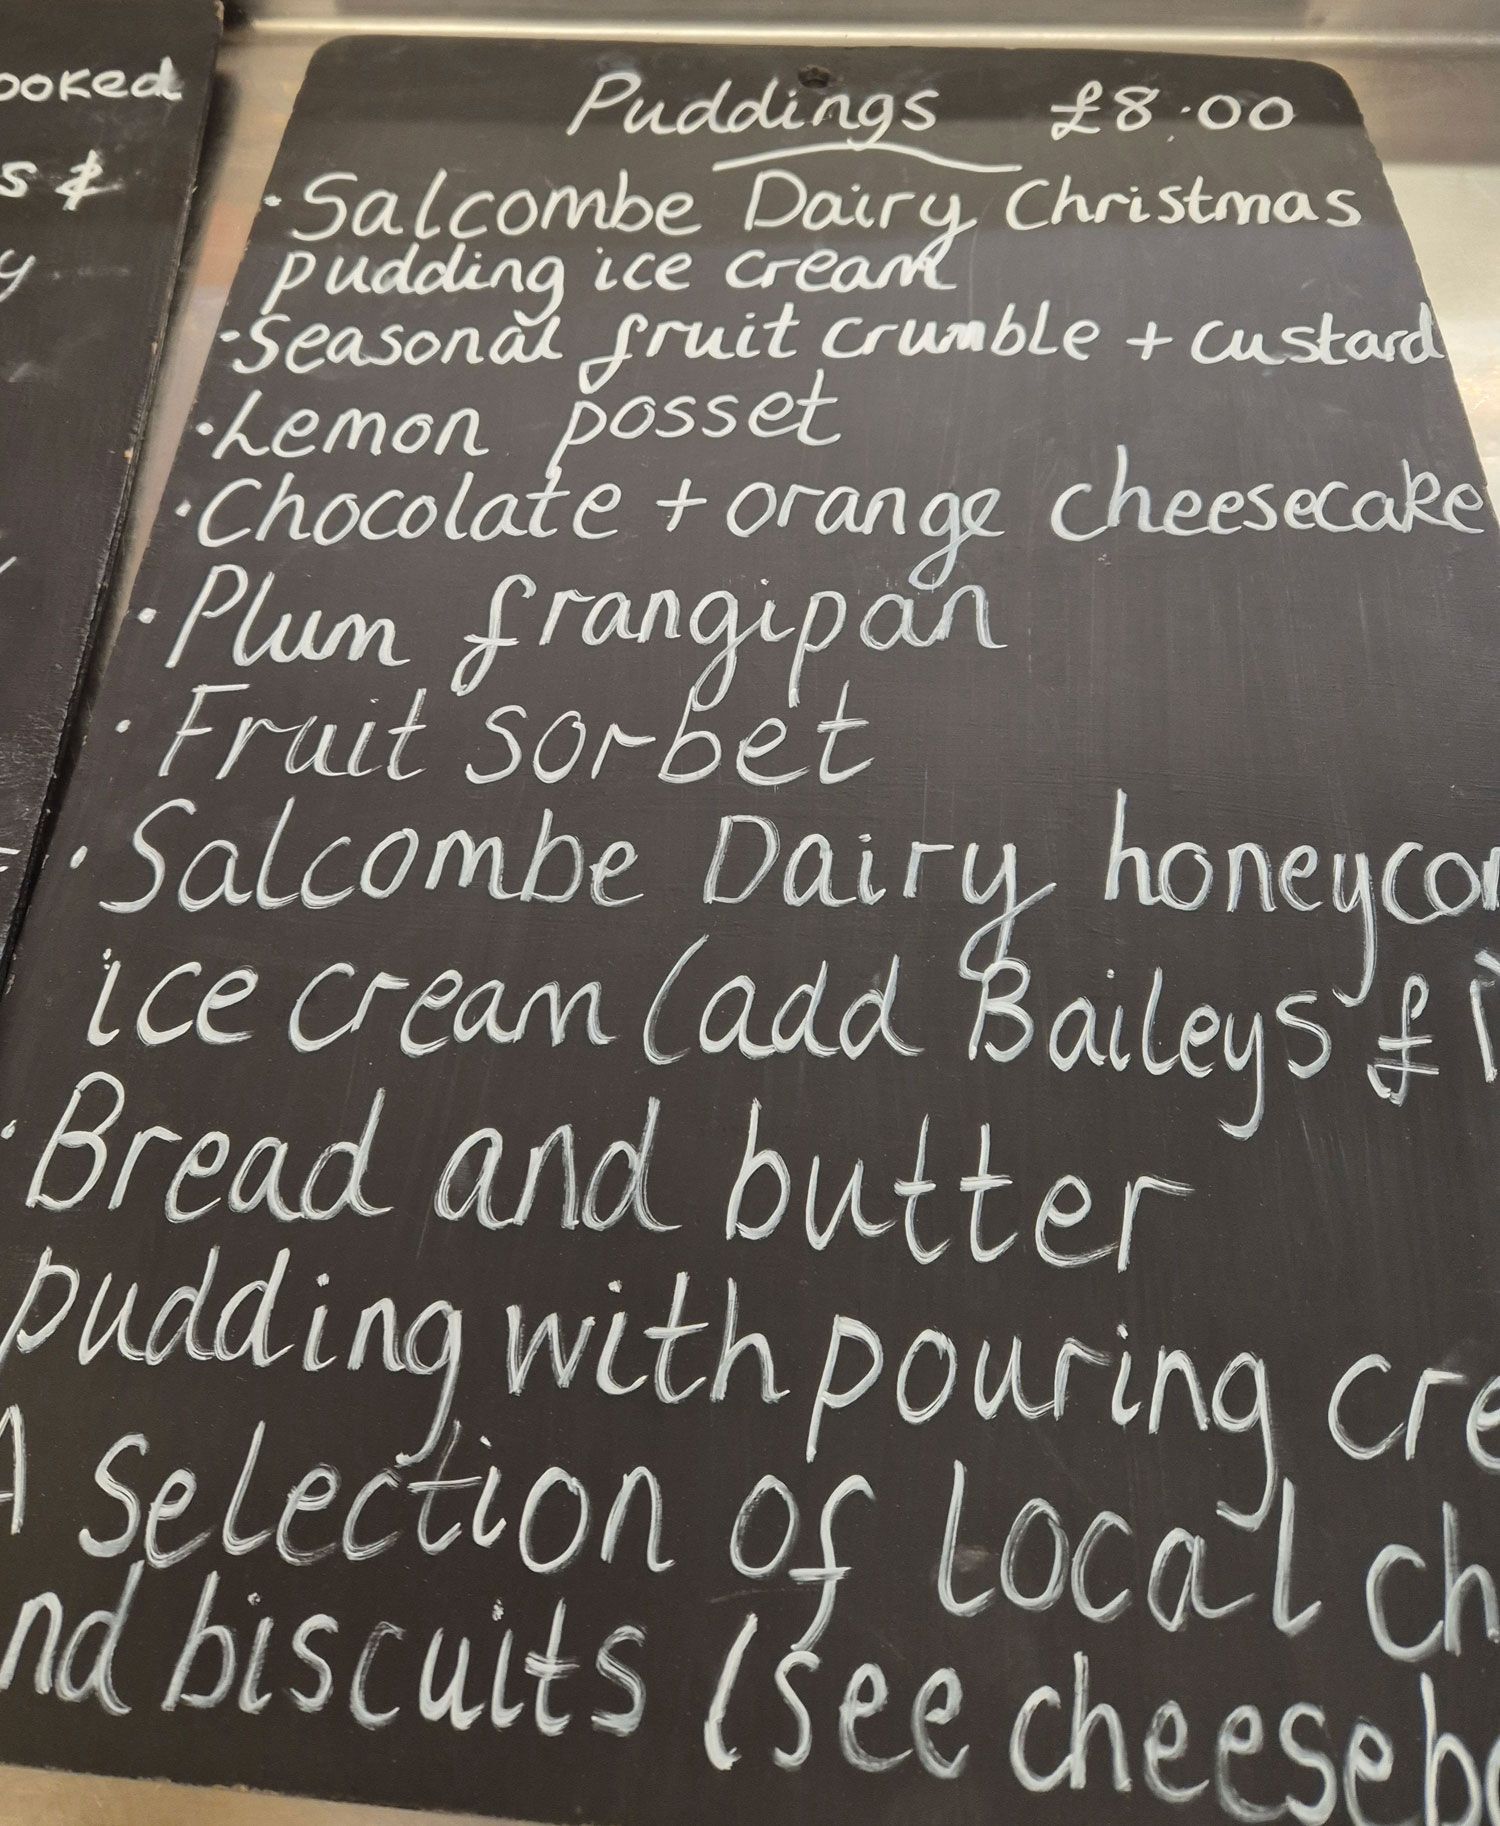 Puddings £8.00
· Salcombe Dairy Christmas
pudding ice cream
· Seasonal fruit crumble + custard
· Lemon posset
· Chocolate + orange cheesecake
· Plum frangipan
· Fruit sorbet
· Salcombe Dairy honeycom
ice cream (add Baileys £
· Bread and butter
pudding with pouring cre
A Selection of local ch
nd biscuits (see cheesebo
ooked
s &
y